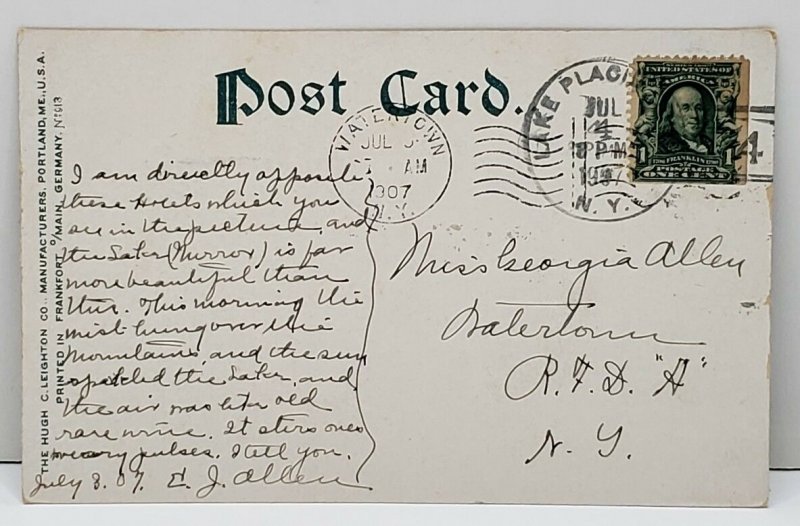 Post Card.
THE HUGH C. LEIGHTON CO., MANUFACTURERS, PORTLAND, ME., U.S.A.
PRINTED IN FRANKFORT O/MAIN, GERMANY. Nº 913
WATERTOWN
JUL
AM
1907
N.Y.
LAKE PLACI
JUL
4
8 PM
1907
N.Y.
4
UNITED STATES OF
AMERICA
1 FRANKLIN 1
POSTAGE
ONE CENT
I am directly opposite
these Hotels which you
see in the picture, and
the Lake (Mirror) is far
more beautiful than
this. This morning the
mist hung over the
Mountains, and the sun
the Lake, and
the air was like old
rare wine. It stirs ones
weary pulses, I tell you.
July 3. 07. E. J. Allen
Miss Georgia Allen
Watertown
R.F.D. "A"
N. Y.